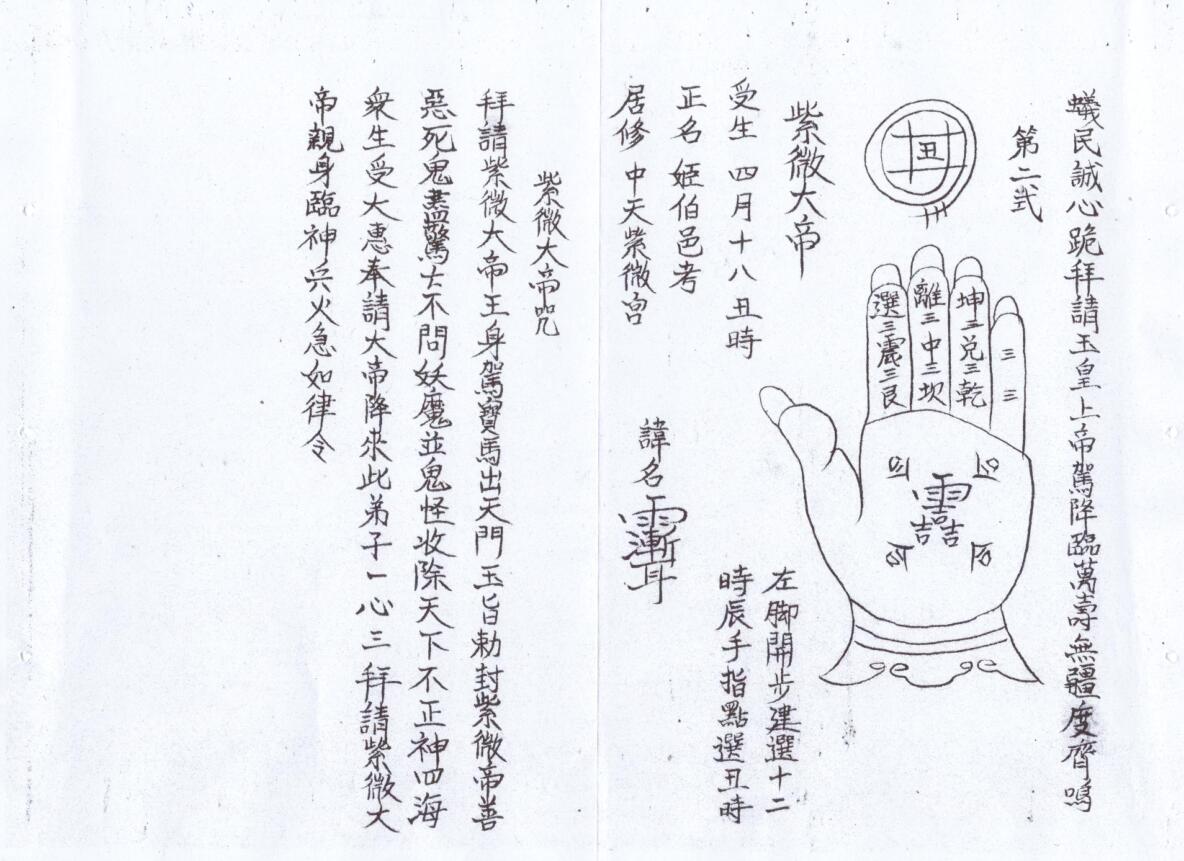 蟻民誠心跪拜請玉皇上帝駕降臨萬壽無疆度齊鳴
第二弐
丑
選三震三艮
離三中三坎
坤三兌三乾
三三
左脚開步建選十二
時辰手指點選丑時
紫微大帝
受生四月十八丑時
正名姬伯邑考
居修中天紫微宮
諱名
紫微大帝咒
拜請紫微大帝王身駕寶馬出天門玉旨勅封紫微帝善
惡死鬼盡驚亡不問妖魔並鬼怪收除天下不正神四海
衆生受大惠奉請大帝降來此弟子一心三拜請紫微大
帝親身臨神兵火急如律令